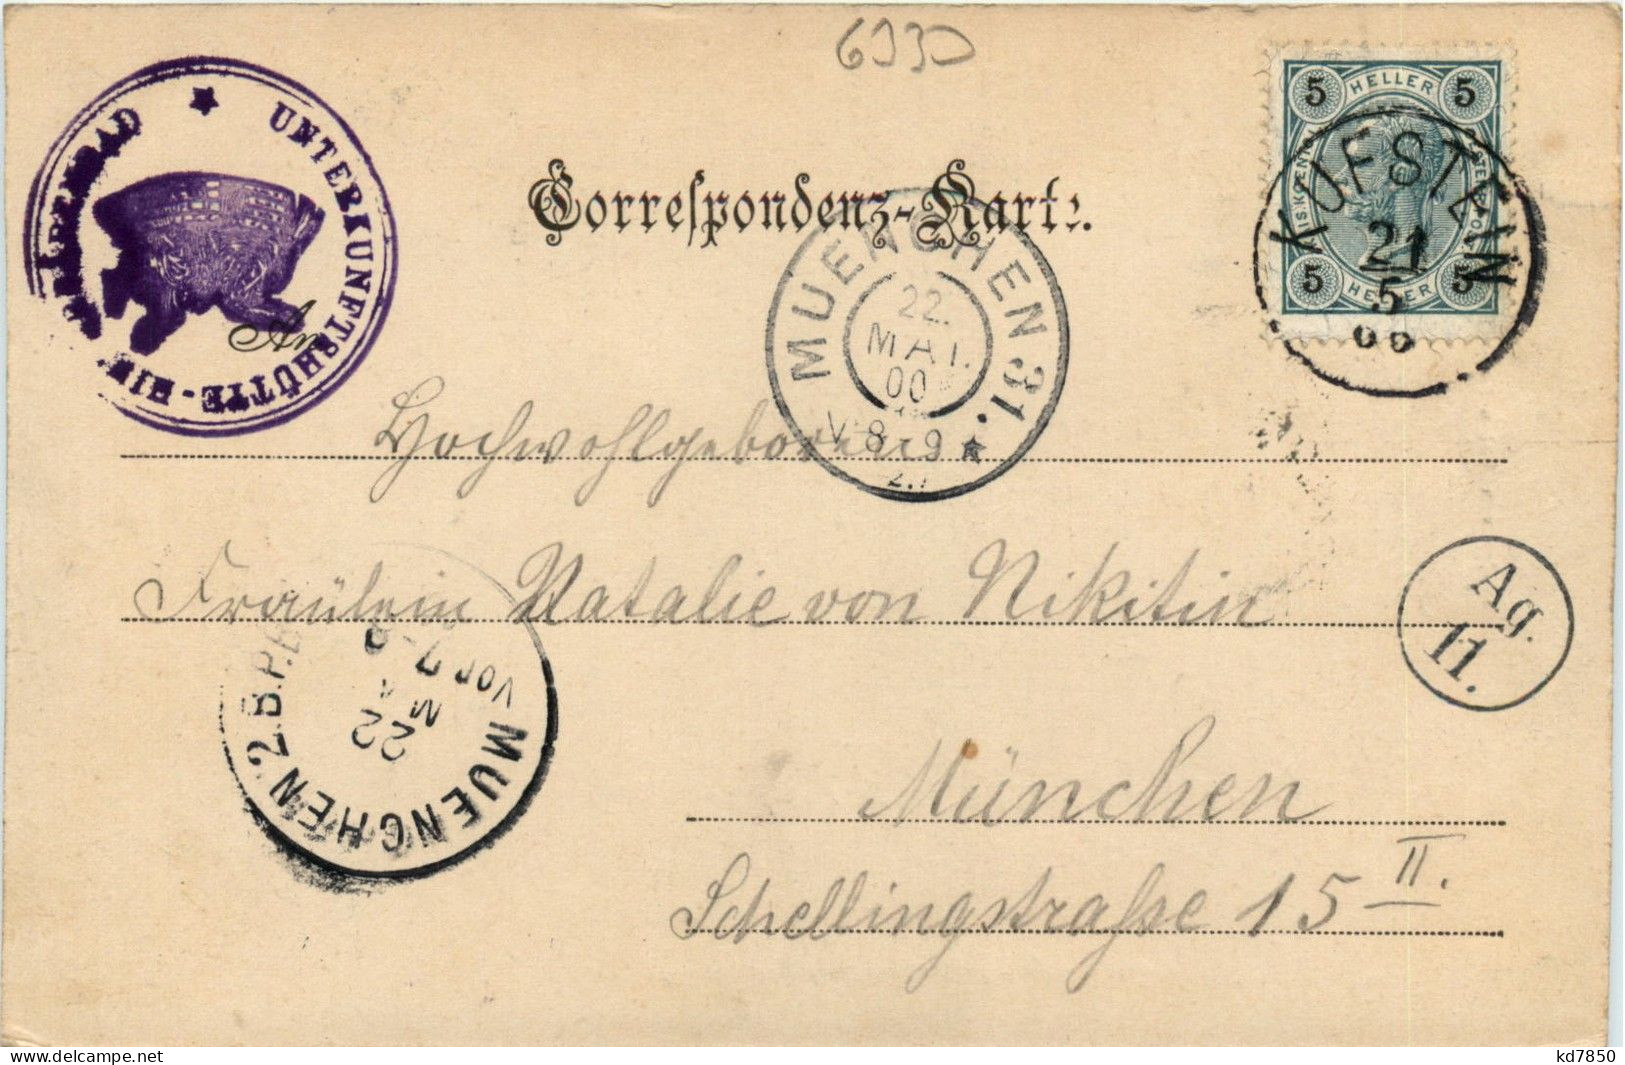 6930
UNTERKUNFTSHÜTTE-HINTERBÄRENBAD
Correspondenz-Karte.
5 HELLER 5
5 HELLER 5
KUFSTEIN
21
5
00
MUENCHEN 31.
22.
MAI.
00
V 8-9
An
Hochwohlgeboren
Fräulein Natalie von Nikitin
Ag.
11.
MUENCHEN 2 B.P.
22
MA
VOR 7-8
München
Schellingstraße 15 II.
kd7850
https://www.delcampe.net